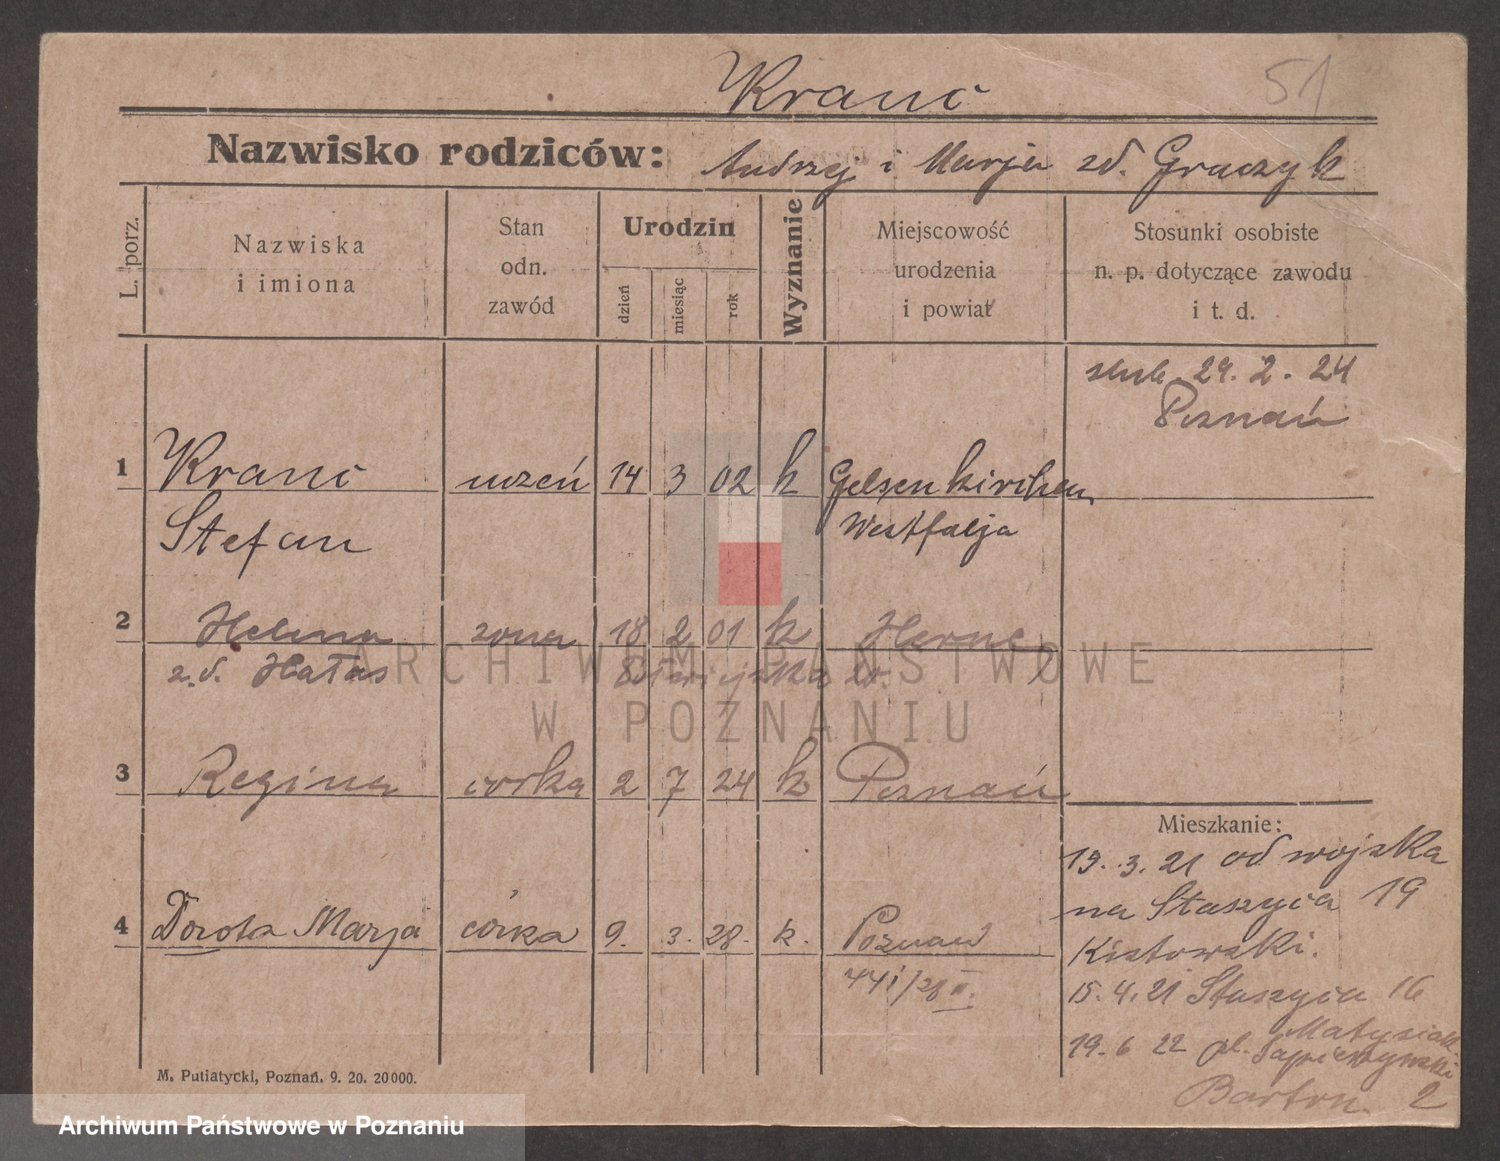 Kranc
51
Nazwisko rodziców: Andrzej i Marja zd. Graczyk
L. porz.
Nazwiska
i imiona
Stan
odn.
zawód
Urodzin
dzień
miesiąc
rok
Wyznanie
Miejscowość
urodzenia
i powiat
Stosunki osobiste
n. p. dotyczące zawodu
i t. d.
ślub 29. 2. 24
Poznań
1 Kranc uczeń 14 3 02 k Gelsenkirchen
Stefan Westfalja
2 Helena żona 18 2 01 k Herne
z.d. Hałas
ARCHIWUM PAŃSTWOWE
W POZNANIU
3 Regina córka 2 7 24 k Poznań
4 Dorota Marja córka 9. 3. 28. k. Poznań
Mieszkanie:
19. 3. 21 od wojska
na Staszyca 19
Kistowski.
15. 4. 21 Staszyca 16
Matysiak
19. 6 22 pl. Sapieżyński
2
M. Putiatycki, Poznań. 9. 20. 20000.
Archiwum Państwowe w Poznaniu